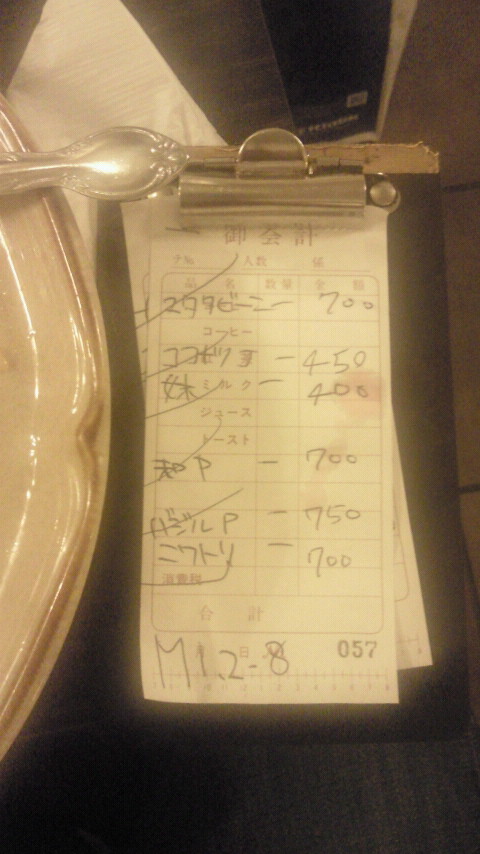 御会計
テ№ 人数 係
品名 数量 金額
スタタビーニ 一 700
コーヒー
ココビリ 一 450
妹 ミルク 一 400
ジュース
トースト
和P 一 700
バジルP 一 750
ニワトリ 一 700
消費税
合計
M1.2-8 日 057